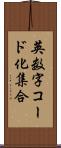 英数字コー
ド化集合